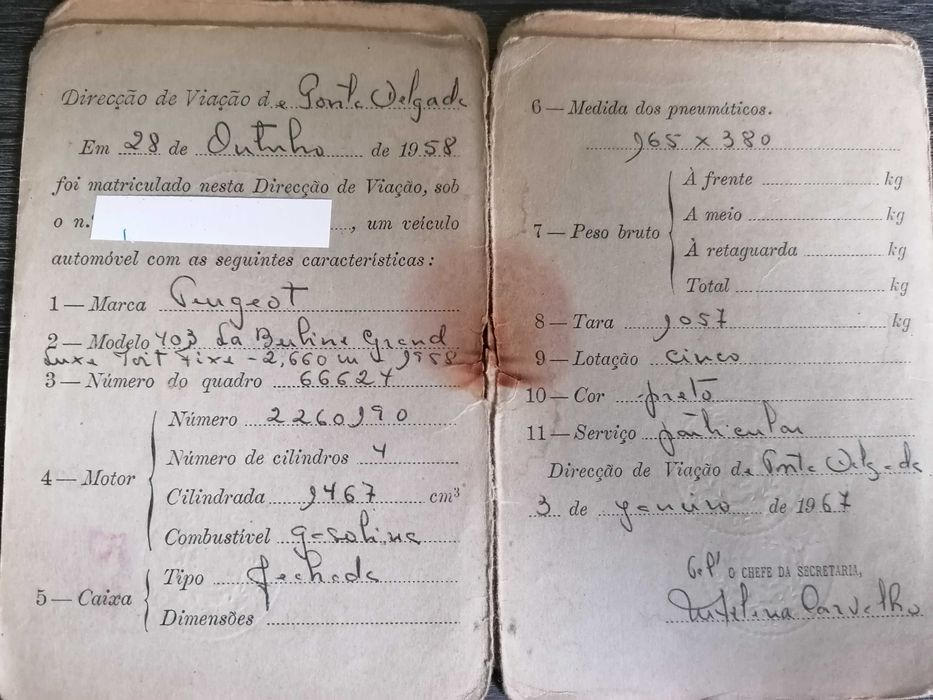 Direcção de Viação de Ponta Delgada
Em 28 de Outubro de 1958
foi matriculado nesta Direcção de Viação, sob
o n.º , um veículo
automóvel com as seguintes características:
1 — Marca Peugeot
2 — Modelo 403 La Berline Grand
Luxe Toit Fixe - 2,660 m - 1958
3 — Número do quadro 66624
4 — Motor
Número 2260190
Número de cilindros 4
Cilindrada 1467 cm³
Combustível gasolina
5 — Caixa
Tipo fechada
Dimensões
6 — Medida dos pneumáticos.
165 x 380
7 — Peso bruto
À frente kg
A meio kg
À retaguarda kg
Total kg
8 — Tara 1057 kg
9 — Lotação cinco
10 — Cor preto
11 — Serviço particular
Direcção de Viação de Ponta Delgada
3 de Janeiro de 1967
O CHEFE DA SECRETARIA,
Carvalho